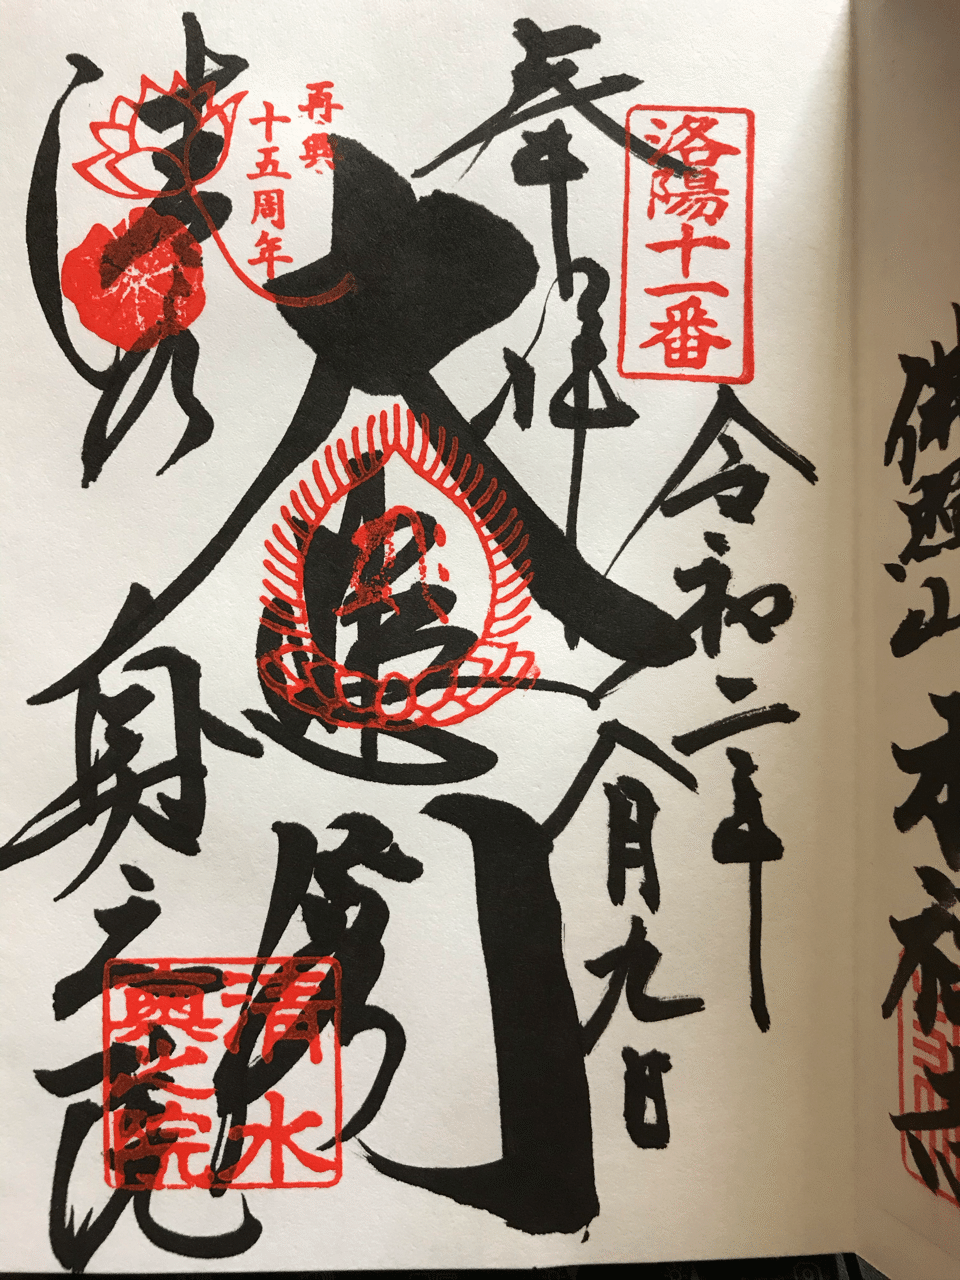 洛陽十一番
令和二年
八月九日
奉拝
大悲閣
再興
十五周年
清水
奥之院
清水
奥之院